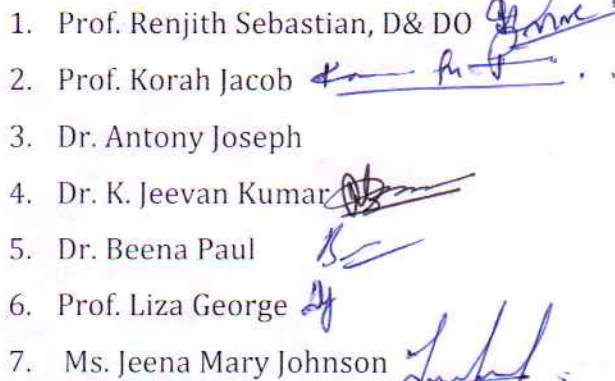 1. Prof. Renjith Sebastian, D& DO
2. Prof. Korah Jacob
3. Dr. Antony Joseph
4. Dr. K. Jeevan Kumar
5. Dr. Beena Paul
6. Prof. Liza George
7. Ms. Jeena Mary Johnson